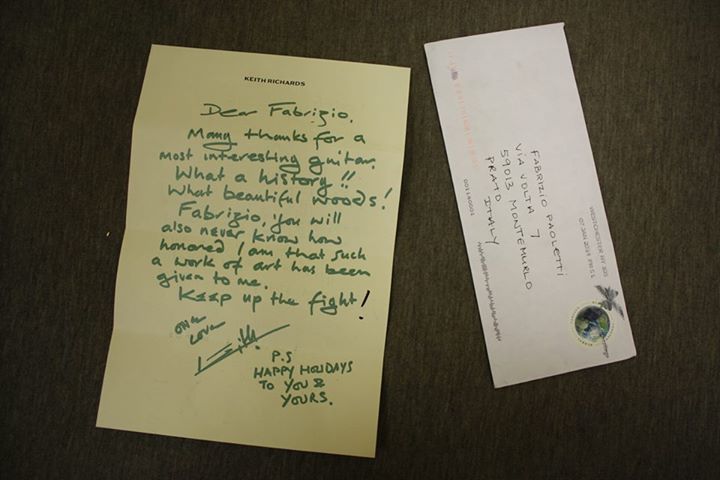 KEITH RICHARDS
Dear Fabrizio.
Many thanks for a
most interesting guitar.
What a history!!
What beautiful woods!
Fabrizio, you will
also never know how
honored I am that such
a work of art has been
given to me.
Keep up the fight!
one
love
P.S
HAPPY HOLIDAYS
TO YOU &
YOURS.
FABRIZIO PAOLETTI
VIA VOLTA 7
59013 MONTEMURLO
PRATO
ITALY
WESTCHESTER NY 105